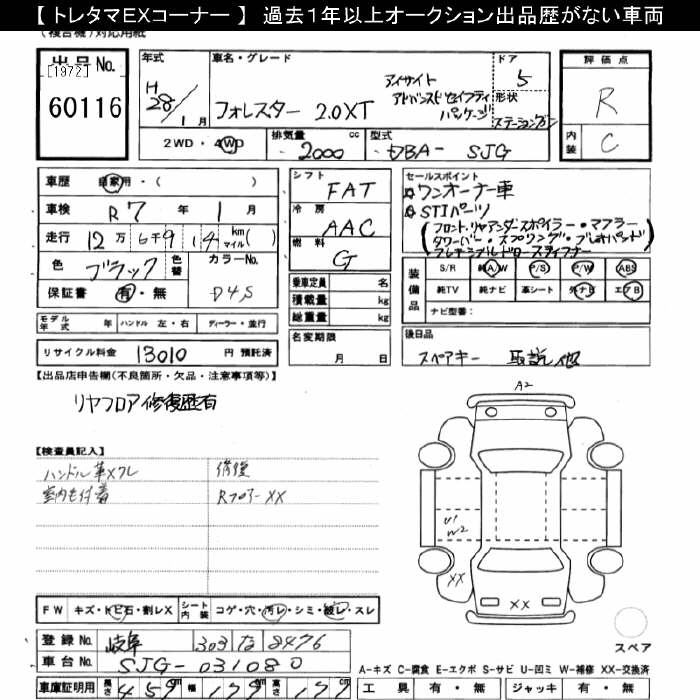 【 トレタマEXコーナー 】 過去1年以上オークション出品歴がない車両
(複合機)対応用紙
出品No.
[1972]
60116
年式
H28/1月
車名・グレード
フォレスター 2.0XT
アイサイト
アドバンスドセイフティ
パッケージ
ドア
5
形状
ステーションワゴン
評価点
R
内装
C
2WD・4WD
排気量
2000
cc
型式
DBA- SJG
車歴 自家用・( )
車検 R7年 1月
走行 12万6千914km マイル( )
色 ブラック
色替
カラーNo.
保証書 有・無
D4S
シフト
FAT
冷房
AAC
燃料
G
セールスポイント
☆ワンオーナー車
☆STIパーツ
(フロント・リヤアンダースポイラー・マフラー
タワーバー・スプリング・ブレーキパッド
フレキシブルドロースティフナー)
乗車定員 名
積載量 kg
総重量 kg
装備品
S/R 純A/W P/S P/W ABS
純TV 純ナビ 革シート 外ナビ エアB
ナビ型番:
モデル年式 年 ハンドル 左・右 ディーラー・並行
名変期限
月 日
後日品
スペアキー 取説他
リサイクル料金 13010 円 預託済
【出品店申告欄(不良箇所・欠品・注意事項等)】
リヤフロア修復歴有
A2
【検査員記入】
ハンドル革スレ 修復
室内モ付着 Rフロアー XX
U1
W2
XX
XX
FW キズ・トビ石・割レX シート内装 コゲ・穴・汚レ・シミ・破レ・スレ
登録No. 岐阜 303 な 8476
車台No. SJG-031080
スペア
A-キズ C-腐食 E-エクボ S-サビ U-凹ミ W-補修 XX-交換済
車庫証明用 長さ 459cm 幅 179cm 高さ 179cm
工具 有・無 ジャッキ 有・無